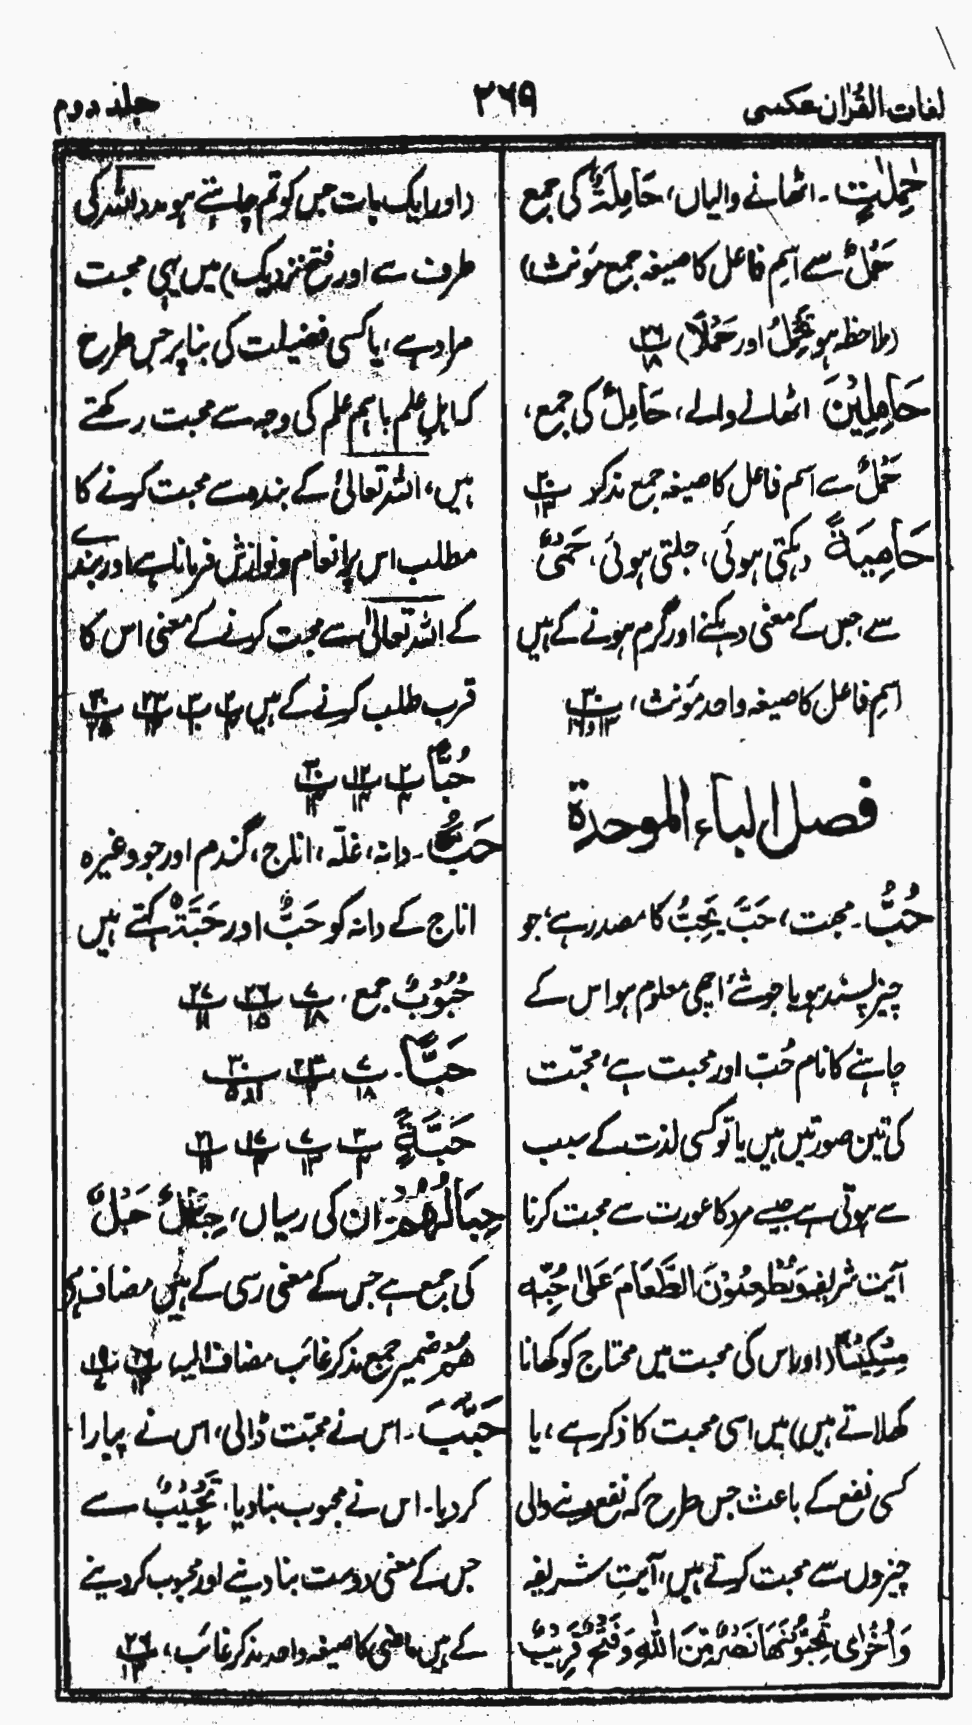 لغات القرآن عکسی
۲۶۹
جلد دوم
حٰمِلٰتِ ۔ اٹھانے والیاں، حَامِلَةٌ کی جمع
حَمْلٌ سے اسم فاعل کا صیغہ جمع مؤنث)
(ملاحظہ ہو تَحْمِلُ اور حَمْلًا) ۲۶/۱۸
حَامِلِیْنَ اٹھانے والے، حَامِلٌ کی جمع،
حَمْلٌ سے اسم فاعل کا صیغہ جمع مذکر ۲۰/۱۳
حَامِیَةً دہکتی ہوئی، جلتی ہوئی، حَمْیٌ
سے جس کے معنی دہکنے اور گرم ہونے کے ہیں
اسم فاعل کا صیغہ واحد مؤنث، ۳۰/۱۳ و ۱۶
فصل الباء الموحدة
حُبُّ ۔ محبت، حَبَّ یَحِبُّ کا مصدر ہے، جو
چیز پسند ہو یا جو شئے اچھی معلوم ہو اس کے
چاہنے کا نام حُبّ اور محبت ہے، محبّت
کی تین صورتیں ہیں یا تو کسی لذت کے سبب
سے ہوتی ہے جیسے مرد کا عورت سے محبت کرنا
آیت شریفہ وَیُطْعِمُوْنَ الطَّعَامَ عَلٰی حُبِّهٖ
مِسْکِیْنًا (اور اس کی محبت میں محتاج کو کھانا
کھلاتے ہیں) میں اسی محبت کا ذکر ہے، یا
کسی نفع کے باعث جس طرح کہ نفع دینے والی
چیزوں سے محبت کرتے ہیں، آیتِ شریفہ
وَاُخْرٰی تُحِبُّوْنَهَا نَصْرٌ مِّنَ اللّٰهِ وَفَتْحٌ قَرِیْبٌ
(اور ایک بات جس کو تم چاہتے ہو مدد اللہ کی
طرف سے اور فتح نزدیک) میں یہی محبت
مراد ہے، یا کسی فضیلت کی بنا پر جس طرح
کہ اہلِ علم باہم علم کی وجہ سے محبت رکھتے
ہیں، اللہ تعالیٰ کے بندہ سے محبت کرنے کا
مطلب اس پر انعام و نوازش فرمانا ہے اور بندے
کے اللہ تعالیٰ سے محبت کرنے کے معنی اس کا
قرب طلب کرنے کے ہیں
حُبًّا ۲/۴ ۱۲/۱۴ ۳۰/۱۴
حَبُّ ۔ دانہ، غلّہ، اناج، گندم اور جو وغیرہ
اناج کے دانہ کو حَبٌّ اور حَبَّةٌ کہتے ہیں
حُبُوْبٌ جمع، ۷/۱۸ ۲۶/۱۵ ۲۷/۱۱
حَبًّا ۔ ۷/۱۸ ۲۳/۲ ۳۰
حَبَّةٍ ۳/۴ ۷/۱۳ ۱۷/۴ ۲۱/۱۱
حِبَالُهُمْ ۔ ان کی رسیاں، حِبَالٌ حَبْلٌ
کی جمع ہے جس کے معنی رسی کے ہیں مضاف ہے
هُمْ ضمیر جمع مذکر غائب مضاف الیہ،
حَبَّبَ ۔ اس نے محبّت ڈالی، اس نے پیارا
کر دیا ۔ اس نے محبوب بنا دیا، تَحْبِیْبٌ سے
جس کے معنی دوست بنا دینے اور محبوب کر دینے
کے ہیں ماضی کا صیغہ واحد مذکر غائب، ۲۶/۱۳